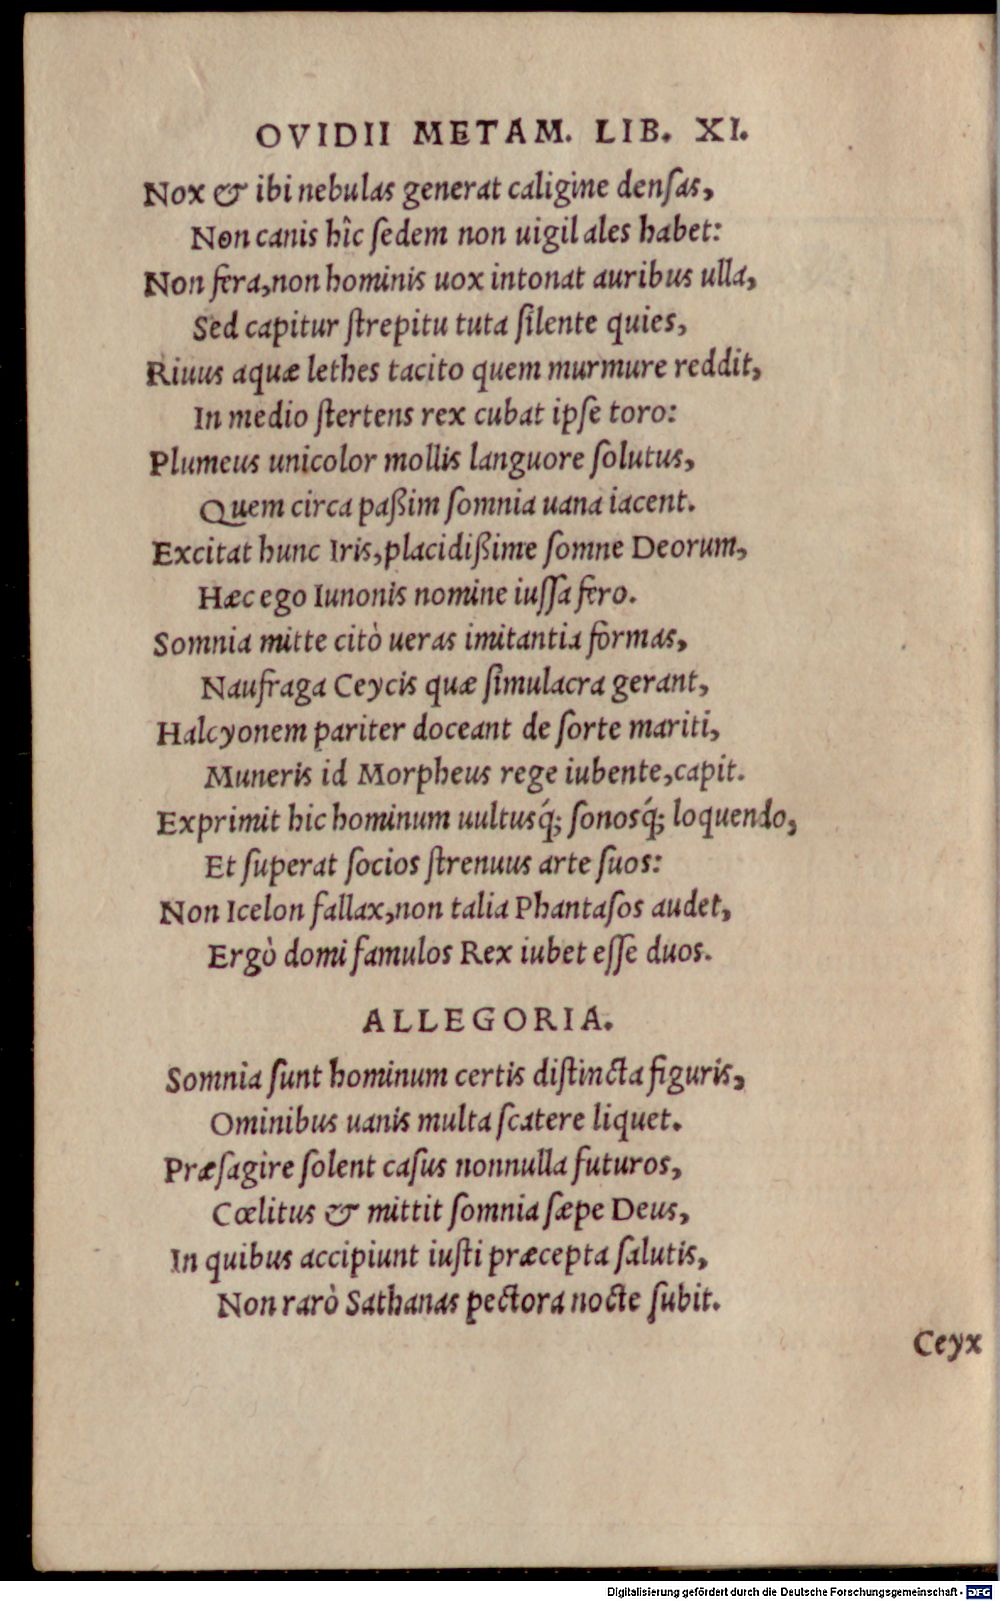 OVIDII METAM. LIB. XI.
Nox & ibi nebulas generat caligine denſas,
Non canis hîc ſedem non uigil ales habet:
Non fera, non hominis uox intonat auribus ulla,
Sed capitur ſtrepitu tuta ſilente quies,
Riuus aquæ lethes tacito quem murmure reddit,
In medio ſtertens rex cubat ipſe toro:
Plumeus unicolor mollis languore ſolutus,
Quem circa paßim ſomnia uana iacent.
Excitat hunc Iris, placidißime ſomne Deorum,
Hæc ego Iunonis nomine iuſſa fero.
Somnia mitte citò ueras imitantia formas,
Naufraga Ceycis quæ ſimulacra gerant,
Halcyonem pariter doceant de ſorte mariti,
Muneris id Morpheus rege iubente, capit.
Exprimit hic hominum uultusq́; ſonosq́; loquendo,
Et ſuperat ſocios ſtrenuus arte ſuos:
Non Icelon fallax, non talia Phantaſos audet,
Ergò domi famulos Rex iubet eſſe duos.
ALLEGORIA.
Somnia ſunt hominum certis diſtincta figuris,
Ominibus uanis multa ſcatere liquet.
Præſagire ſolent caſus nonnulla futuros,
Cœlitus & mittit ſomnia ſæpe Deus,
In quibus accipiunt iuſti præcepta ſalutis,
Non rarò Sathanas pectora nocte ſubit.
Ceyx
Digitalisierung gefördert durch die Deutsche Forschungsgemeinschaft - DFG